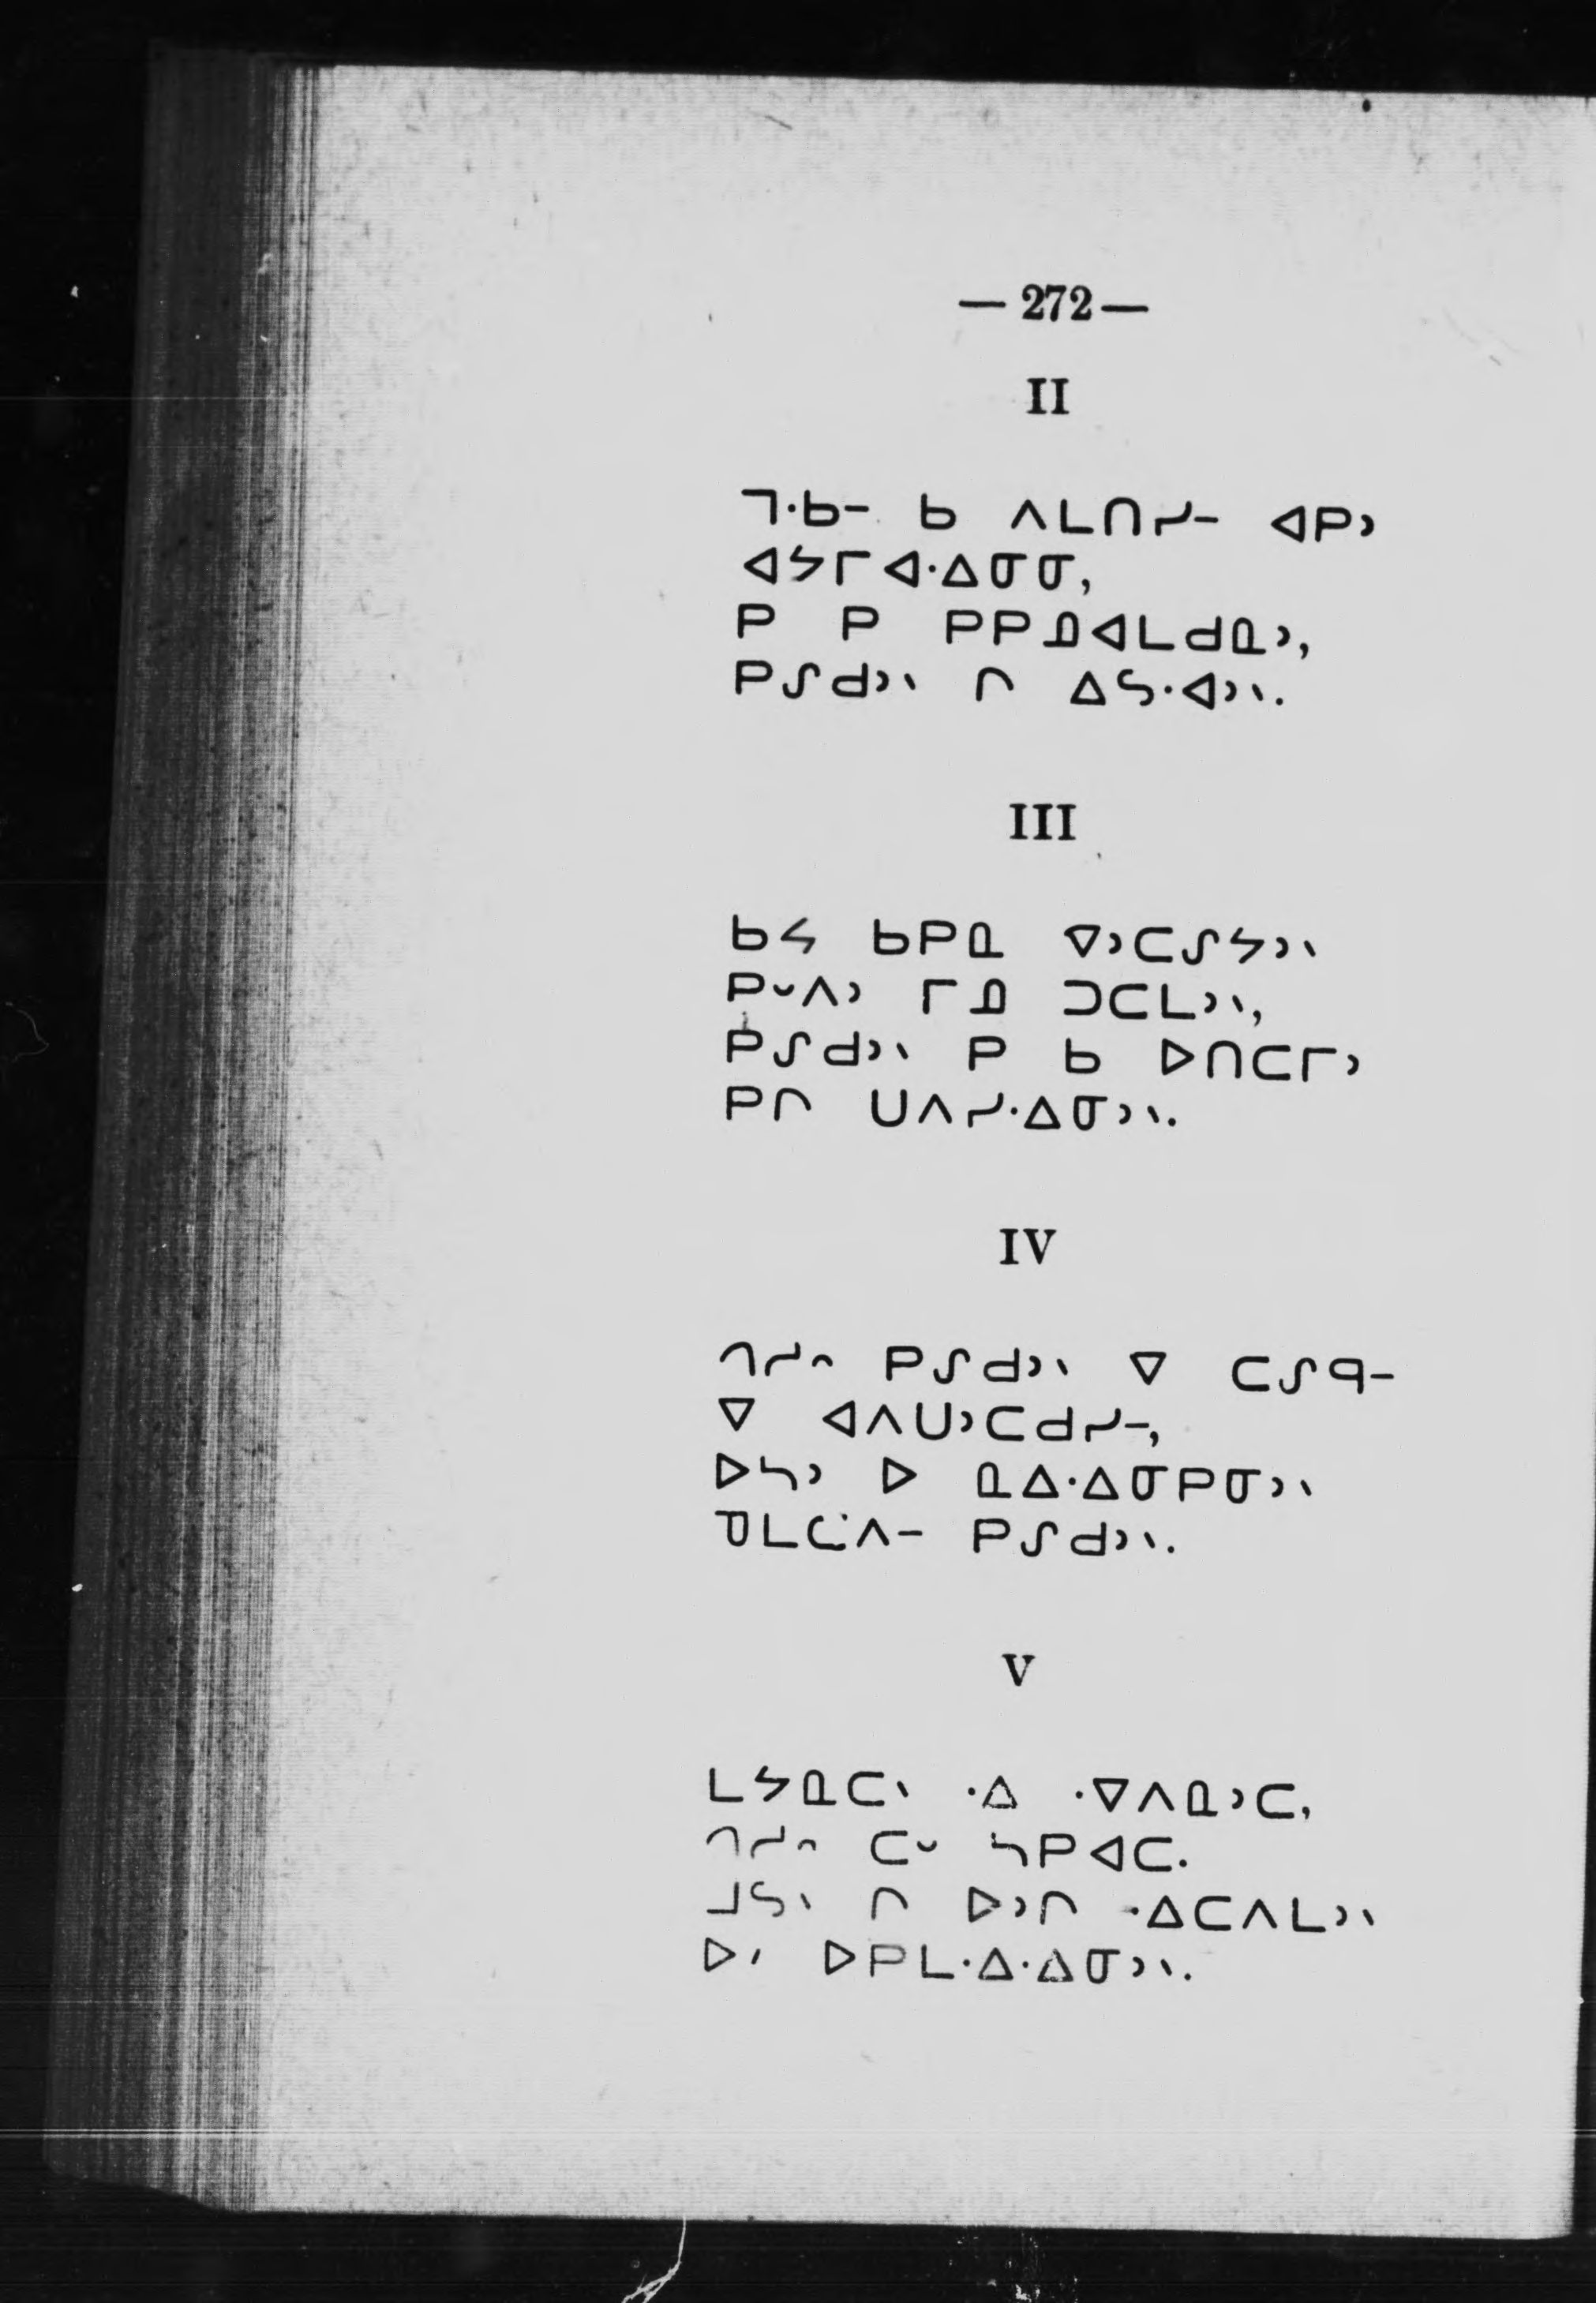 — 272 —
II
ᒣᐧᑲᐨ ᑲ ᐱᒪᑎᓯᐨ ᐊᑭᐣ
ᐊᔭᒥᐊᐧᐃᓂᓂ,
ᑭ ᑭ ᑭᑭᓄᐊᒪᑯᓇᐣ,
ᑭᔑᑯᐣᐠ ᒋ ᐃᔕᐧᐊᐣᐠ.
III
ᑲᔦ ᑲᑭᓇ ᐁᐣᑕᔑᔭᐣᐠ
ᑭᐡᐱᐣ ᒥᓄ ᑐᑕᒪᐣᐠ,
ᑭᔑᑯᐣᐠ ᑭ ᑲ ᐅᑎᑕᒥᐣ
ᑭᒋ ᑌᐱᓯᐧᐃᓂᐣᐠ.
IV
ᒉᓱᐢ ᑭᔑᑯᐣᐠ ᐁ ᑕᔑᑫᐨ
ᐁ ᐊᐱᑌᐣᑕᑯᓯᐨ,
ᐅᓴᐣ ᐅ ᓇᐃᐧᐃᓂᑭᓂᐣᐠ
ᑊᒪᑕᐧᐱᐨ ᑭᔑᑯᐣᐠ.
V
ᒪᔭᓇᑕᐠ ᐧᐃ ᐧᐁᐱᓇᐣᑕ,
ᒉᓱᐢ ᑕᐡ ᓴᑭᐊᑕ.
ᒧᔕᐠ ᒋ ᐅᐣᒋ ᐧᐃᑕᐱᒪᐣᐠ
ᐅᐟ ᐅᑭᒪᐧᐃᐧᐃᓂᐣᐠ.